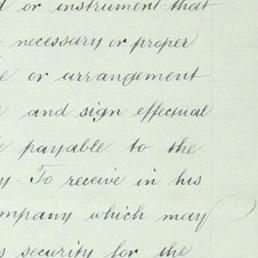 or instrument that
necessary or proper
or arrangement
and sign effectual
payable to the
To receive in his
ompany which may
security for the